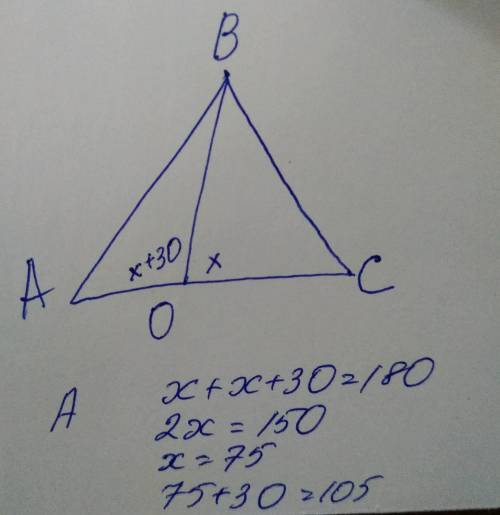 B
x+30 x
A C
O
A x+x+30=180
2x=150
x=75
75+30=105